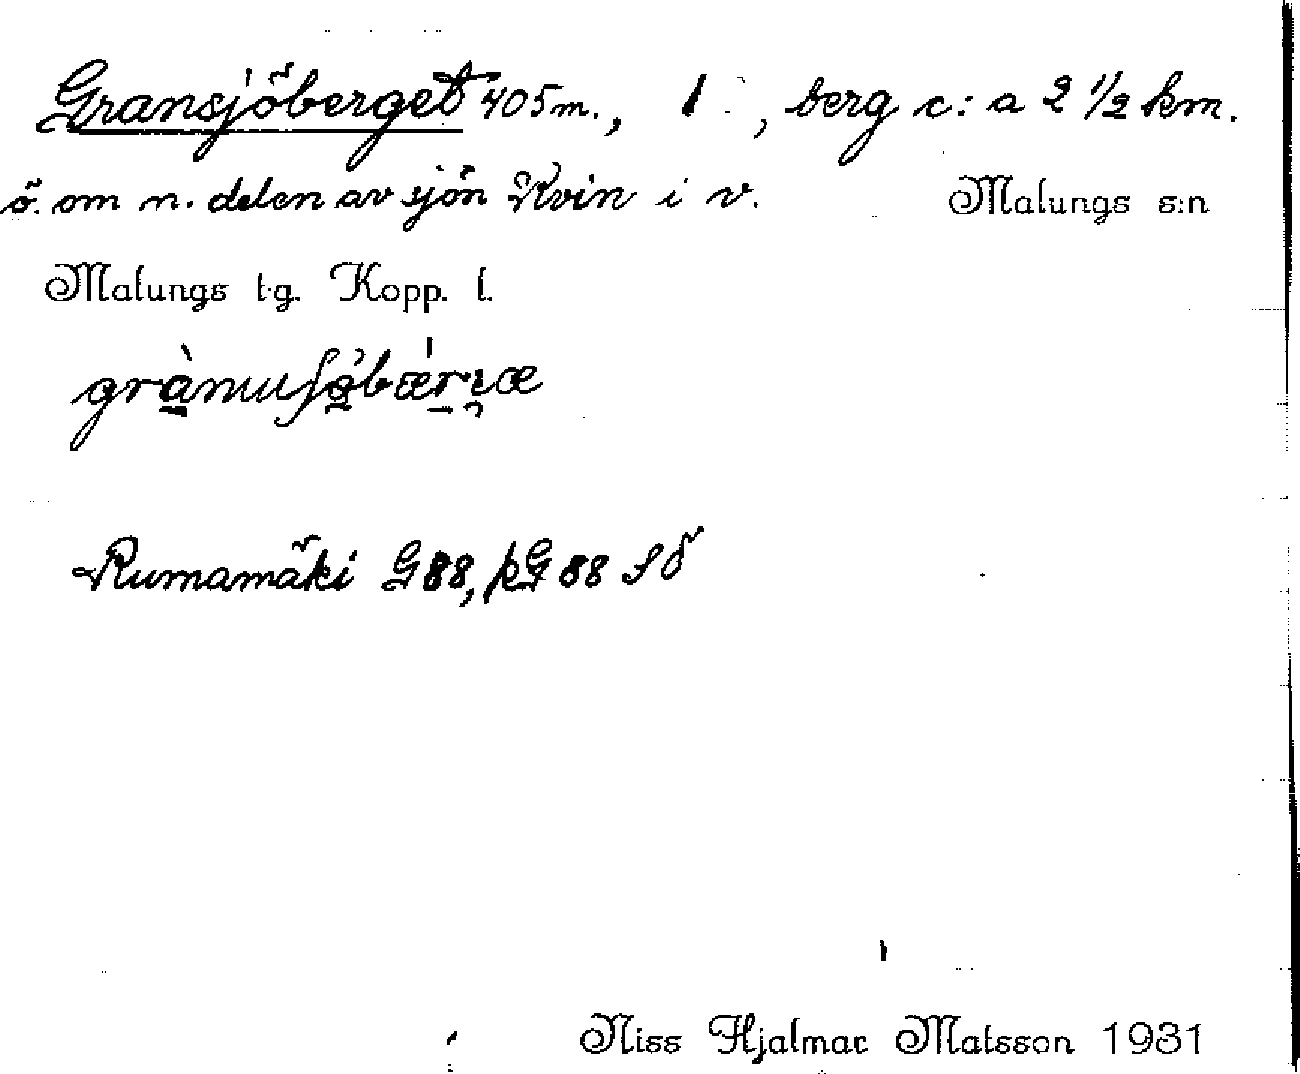 Gransjöberget 405 m., 1 , berg c:a 2 1/2 km.
ö. om n. delen av sjön Kvin i v. Malungs s:n
Malungs tg. Kopp. l.
Rumamäki G88, kG 88 SÖ
Niss Hjalmar Matsson 1931